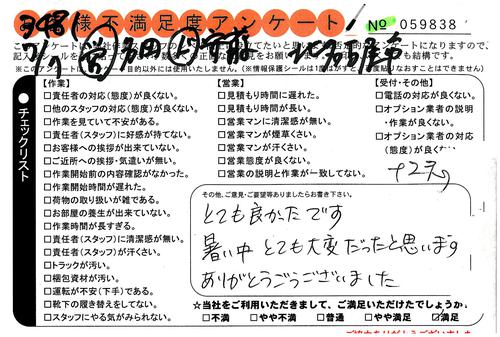 様不満足度アンケート No 059838
【作業】
□責任者の対応(態度)が良くない。
□他のスタッフの対応(態度)が良くない。
□作業を見ていて不安がある。
□責任者(スタッフ)に好感が持てない。
□お客様への挨拶が出来ていない。
□ご近所への挨拶・気遣いが無い。
□作業開始前の内容確認がなかった。
□作業開始時間が遅れた。
□荷物の取り扱いが雑である。
□お部屋の養生が出来ていない。
□作業時間が長すぎる。
□責任者(スタッフ)に清潔感が無い。
□責任者(スタッフ)が汗くさい。
□トラックが汚い。
□梱包資材が汚い。
□運転が不安(下手)である。
□靴下の履き替えをしてない。
□スタッフにやる気がみられない。
【営業】
□見積もり時間に遅れた。
□見積もり時間が長い。
□営業マンに清潔感が無い。
□営業マンが煙草くさい。
□営業マンが汗くさい。
□営業態度が良くない。
□営業の説明と作業が一致してない。
【受付・その他】
□電話の対応が良くない。
□オプション業者の説明
・作業が良くない。
□オプション業者の対応
(態度)が良く
●チェックリスト
その他、ご意見・ご要望等ありましたらお書き下さい。
とても良かたです
暑い中 とても大変だったと思います
ありがとうごうございました
☆当社をご利用いただきまして、ご満足いただけたでしょうか
□不満 □やや不満 □普通 □やや満足 □満足